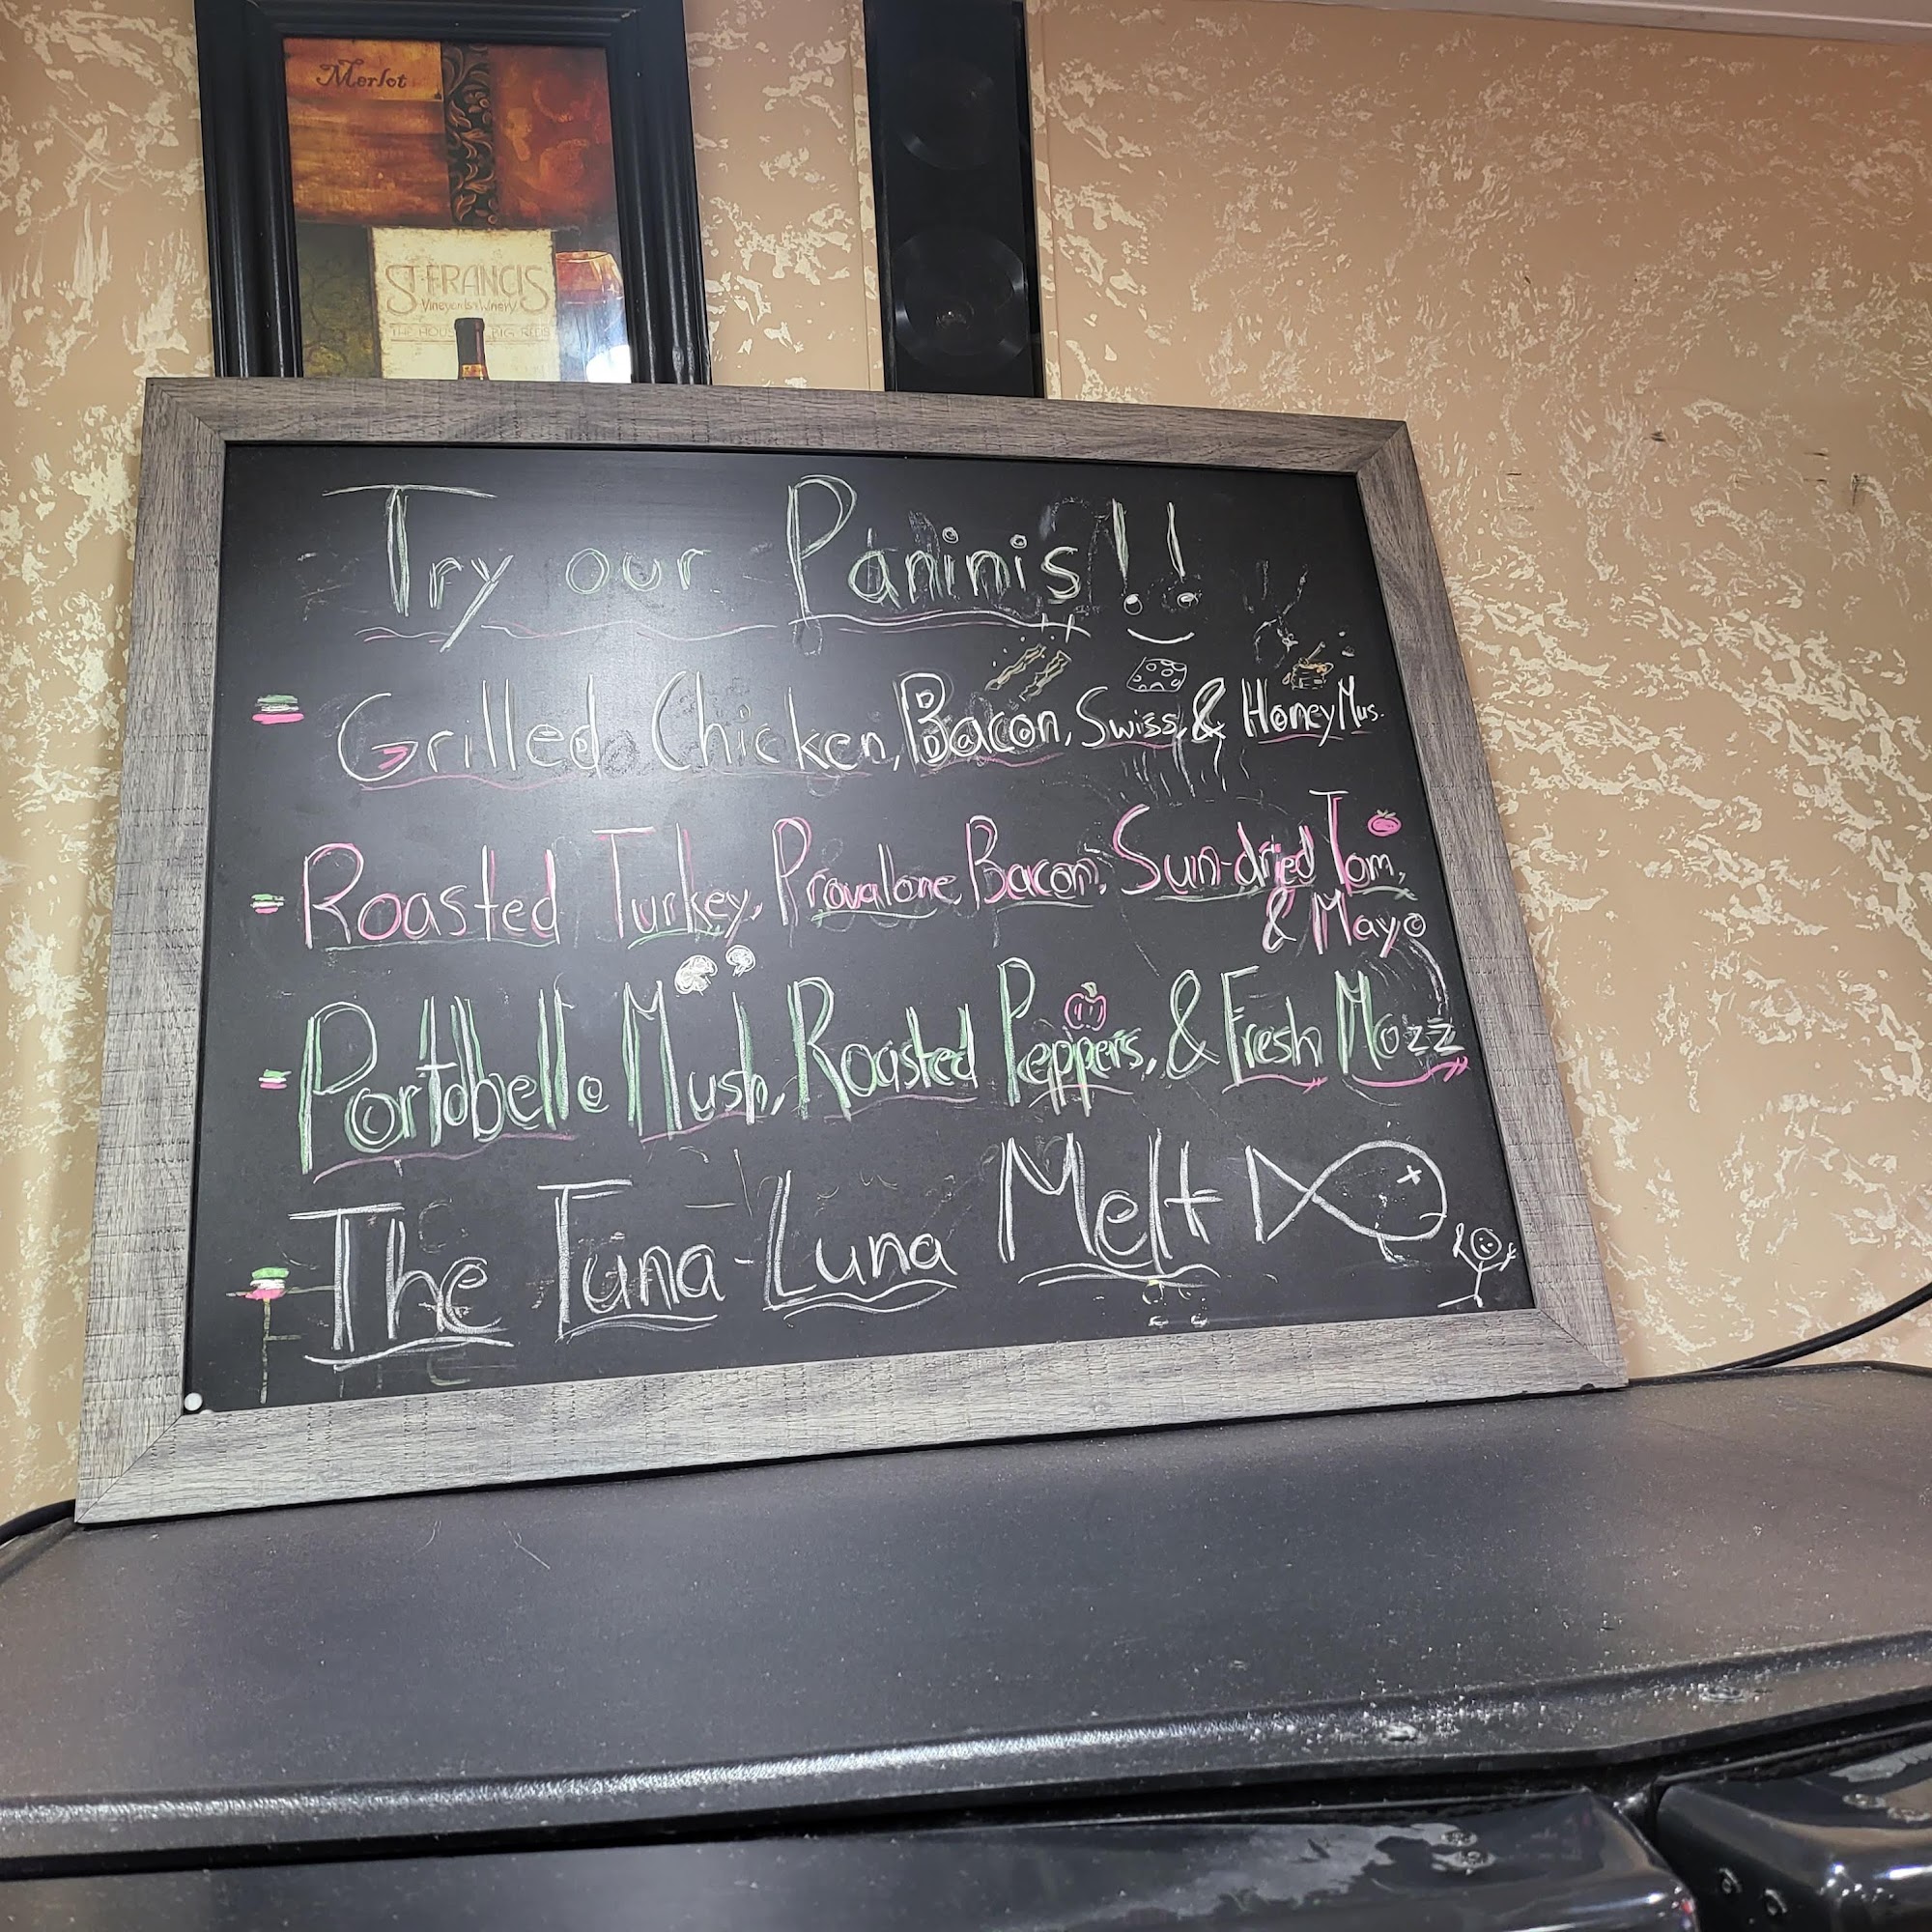 Merlot
ST. FRANCIS
Vineyards & Winery
THE HOUSE BIG REDS
Try our Paninis!!
Grilled Chicken, Bacon, Swiss, & Honey Mus.
Roasted Turkey, Provalone, Bacon, Sun-dried Tom,
& Mayo
Portobello Mush, Roasted Peppers, & Fresh Mozz
The Tuna-Luna Melt